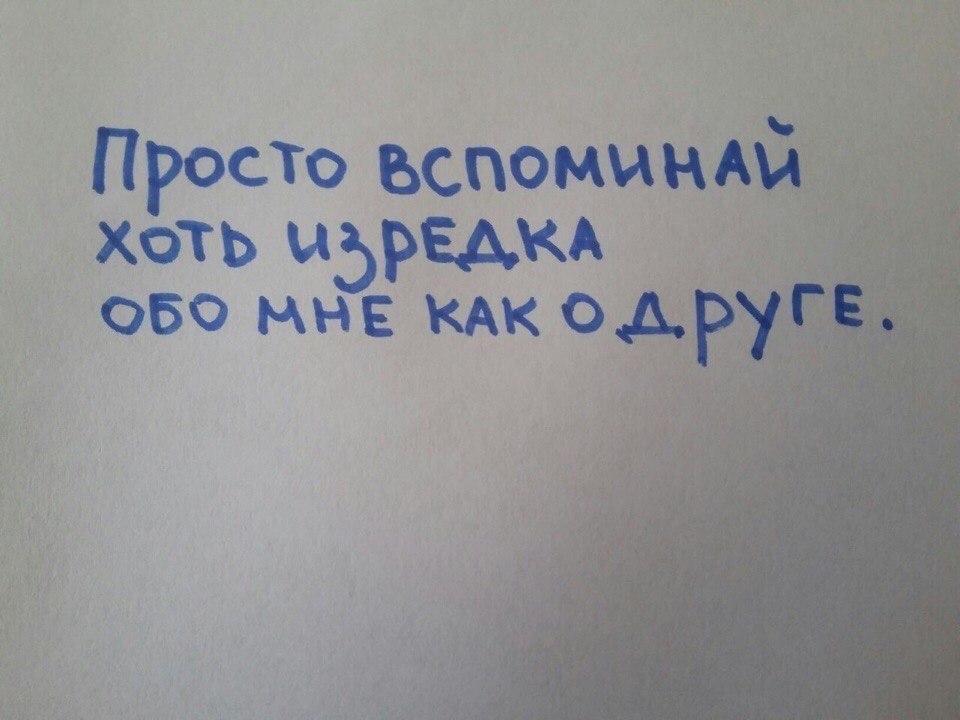 Просто вспоминай
хоть изредка
обо мне как о друге.